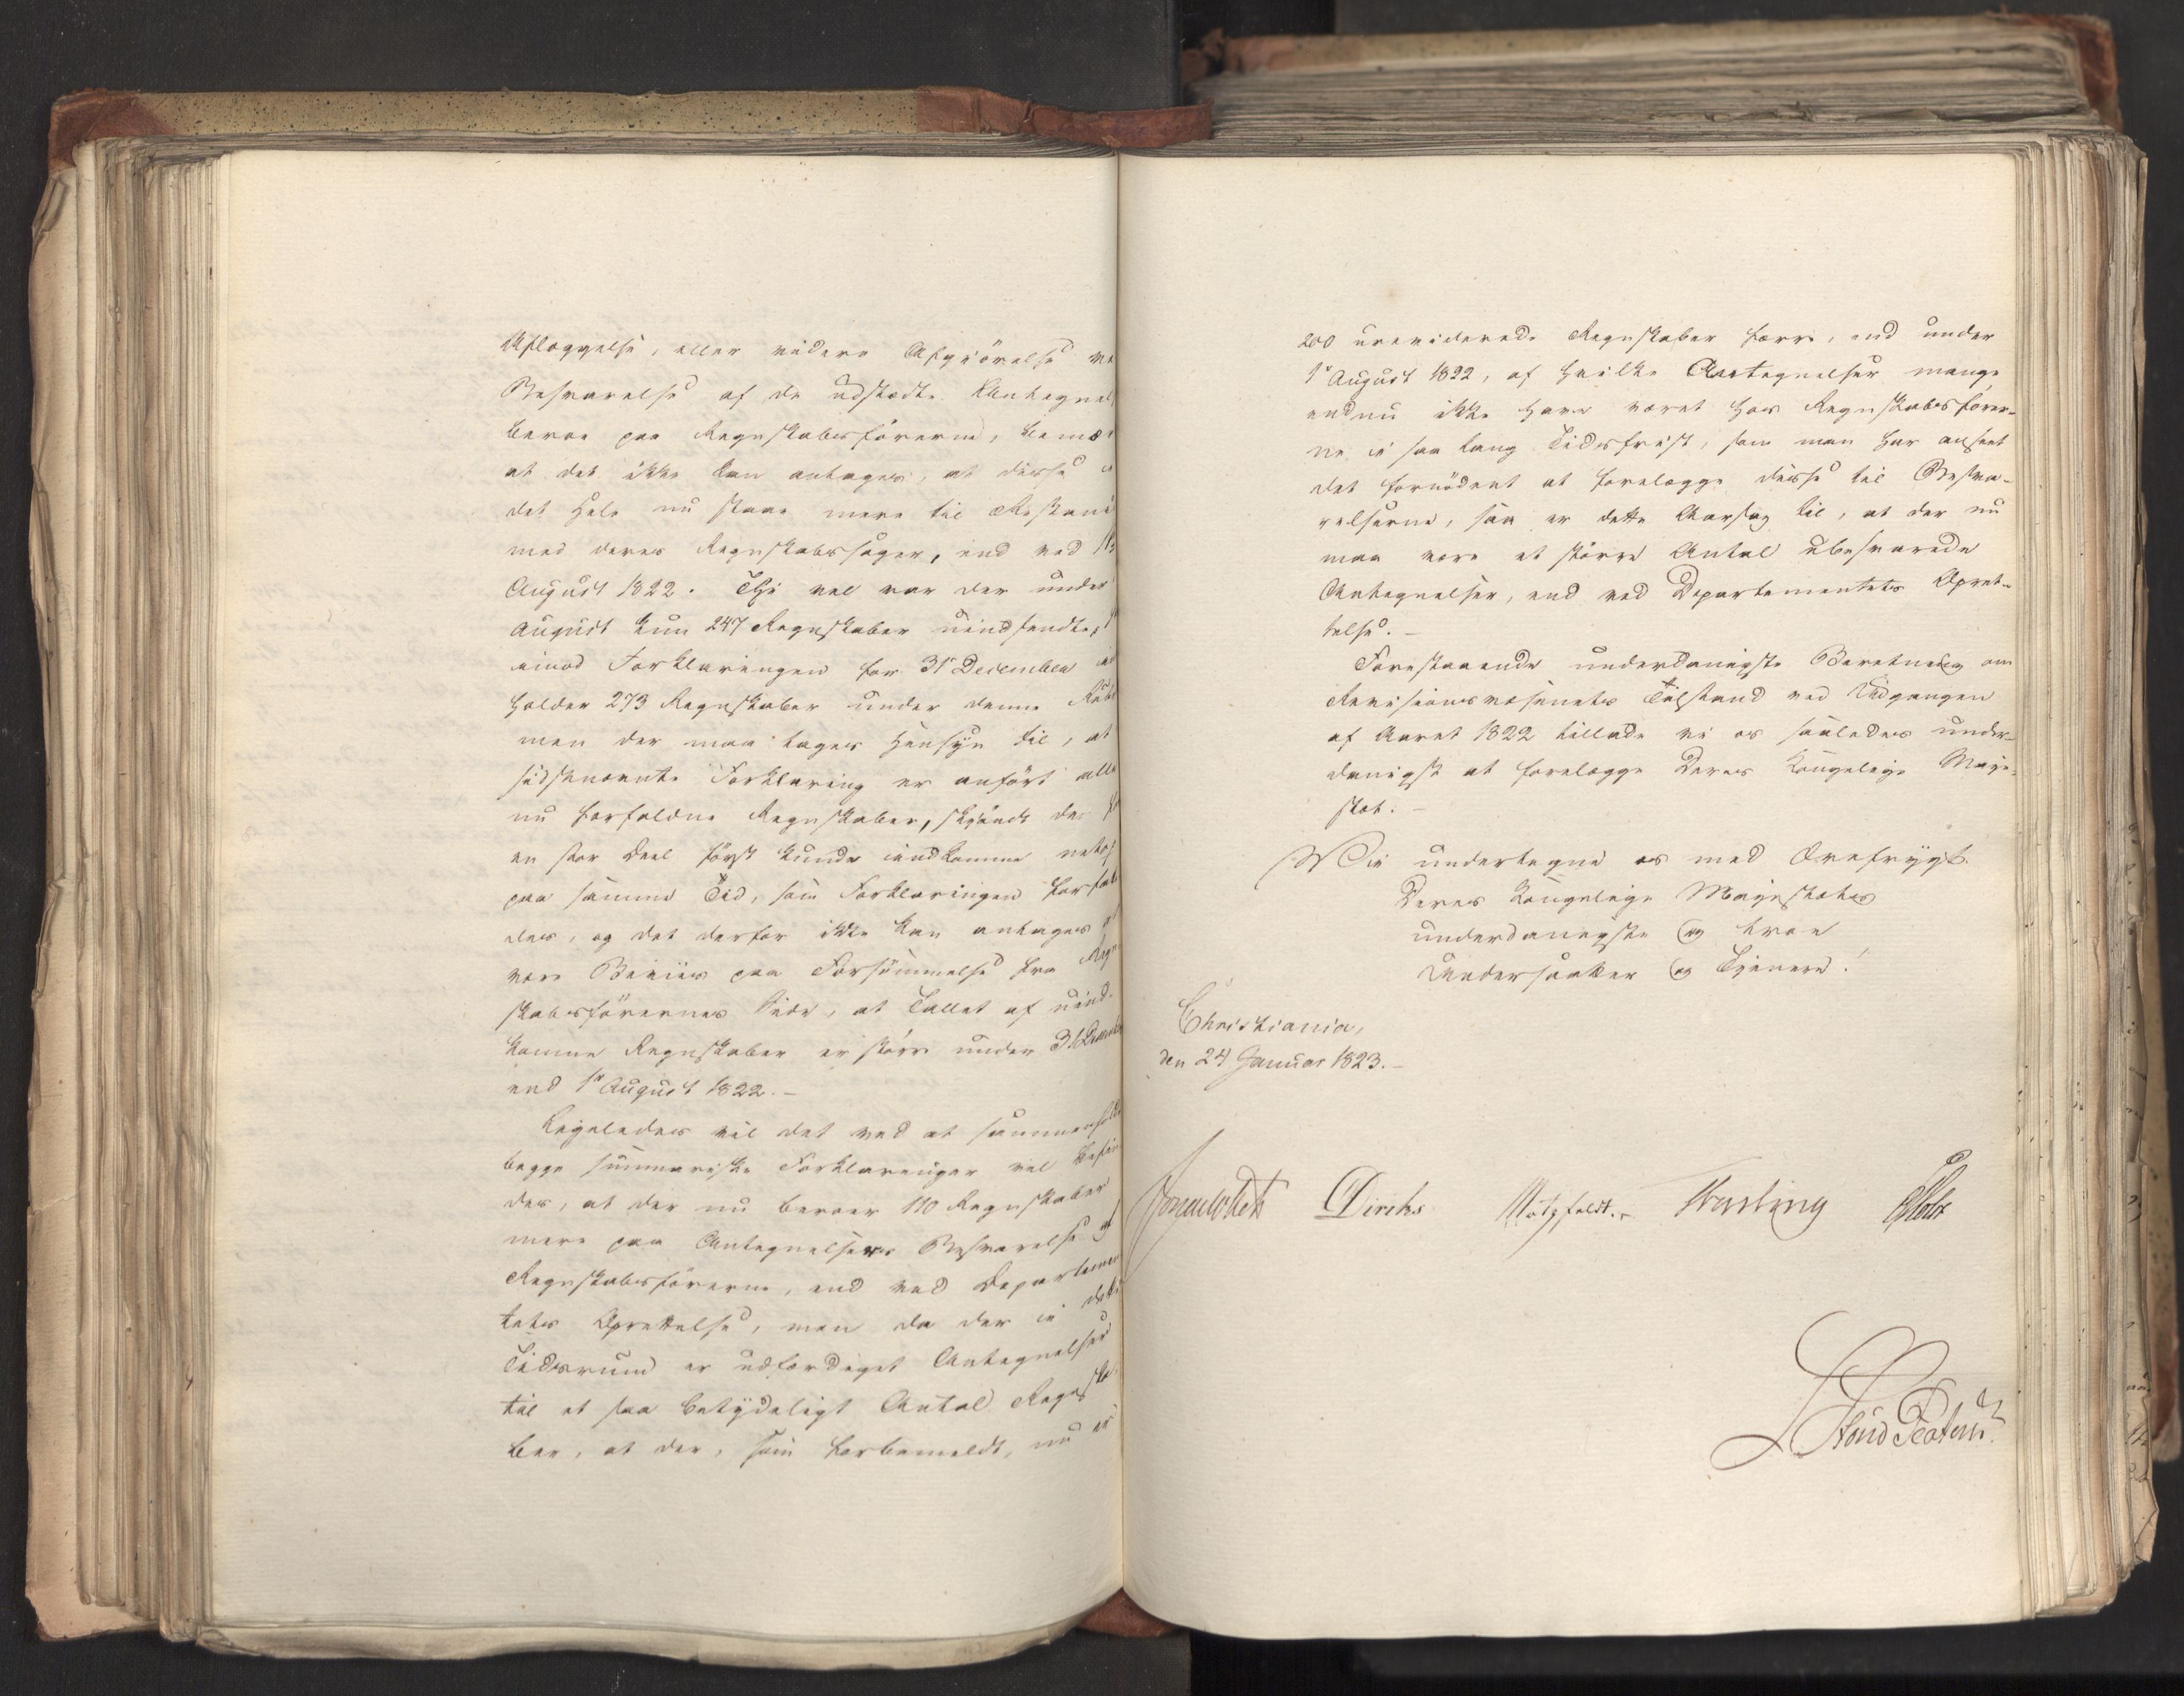 Aflæggelse, eller videre Afgiörelse ve
Besvarelse af de udstædte Antegnel
beroe paa Regnskabsförerne, bemær
at det ikke kan antages, at disse i
det Hele nu staae mere til Restance
med deres Regnskabssager, end ved 1ste
August 1822. Thi vel var der under
August kun 247 Regnskaber uindsendte,
imod Forklaringen for 31 December in
holder 273 Regnskaber under denne Rubr
men der maa tages Hensyn til, at
sidstnævnte Forklaring er anfört alle
nu forfaldne Regnskaber, skjöndt der
en stor Deel först kunde indkomme netop
paa samme Tid, som Forklaringen forfat
des, og det derfor ikke kan antages at
være Beviis paa Forsömmelse fra Regn
skabsförernes Side, at Tallet af uind-
komne Regnskaber er större under 31 December
end 1ste August 1822. –
Ligeledes vil det ved at sammenholde
begge summariske Forklaringer vel befin
des, at der nu beroer 110 Regnskaber
mere paa Antegnelsernes Besvarelse af
Regnskabsförerne, end ved Departemen
tets Oprettelse, men da der i dette
Tidsrum er udfærdiget Antegnelser
til et saa betydeligt Antal Regnska-
ber, at der, som forbemeldt, nu er
200 ureviderede Regnskaber færre, end under
1ste August 1822, af hvilke Antegnelser mange
endnu ikke have været hos Regnskabsförer-
ne i saa lang Tidsfrist, som man har anseet
det fornödent at forelægge disse til Besva-
relserne, saa er dette Aarsag til, at der nu
maa være et större Antal ubesvarede
Antegnelser, end ved Departementets Opret-
telse. –
Forestaaende underdanigste Beretning om
Revisionsvæsenets Tilstand ved Udgangen
af Aaret 1822 tillade vi os saaledes under-
danigst at forelægge Deres Kongelige Maje-
stæt. –
Vi undertegne os med Ærefrygt.
Deres Kongelige Majestæts
underdanigste og troe
Undersaatter og Tjenere!
Christiania,
den 24 Januar 1823. –
Diriks
Motzfeldt. –
Fasting